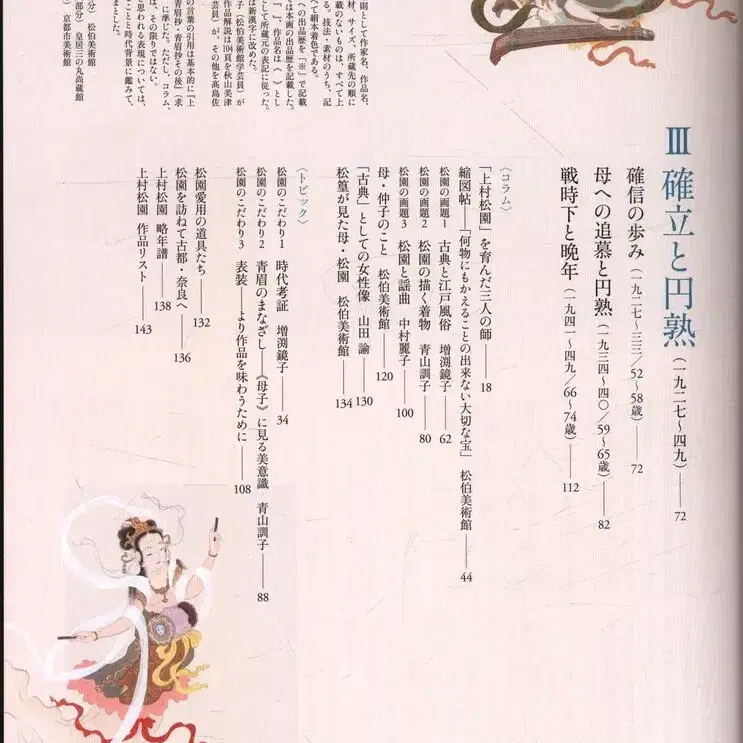 Ⅲ 確立と円熟（一九二七〜四九）——72
確信の歩み（一九二七〜三三／52〜58歳）——72
母への追慕と円熟（一九三四〜四〇／59〜65歳）——82
戦時下と晩年（一九四一〜四九／66〜74歳）——112
〈コラム〉
「上村松園」を育んだ三人の師——18
縮図帖——「何物にもかえることの出来ない大切な宝」 松伯美術館——44
松園の画題1 古典と江戸風俗 増渕鏡子——62
松園の画題2 松園の描く着物 青山訓子——80
松園の画題3 松園と謡曲 中村麗子——100
母・仲子のこと 松伯美術館——120
「古典」としての女性像 山田 諭——130
松篁が見た母・松園 松伯美術館——134
〈トピック〉
松園のこだわり1 時代考証 増渕鏡子——34
松園のこだわり2 青眉のまなざし——《母子》に見る美意識 青山訓子——88
松園のこだわり3 表装——より作品を味わうために——108
松園愛用の道具たち——132
松園を訪ねて古都・奈良へ——136
上村松園 略年譜——138
上村松園 作品リスト——143
則として作家名、作品名、
材、サイズ、所蔵先の順に
載のないものは、すべて上
べて絹本着色である。
る。技法・素材のうち、記
への出品歴を「※」で記載
は本画の出品歴を記載した。
「」、作品名は〈 〉とし
して所蔵元の表記に従った。
は新漢字に改めた。
子（松伯美術館学芸員）が
作品解説は104頁を秋山美津
芸員）が、その他を高島佐
の言葉の引用は基本的に『上
青眉抄・青眉抄その後』（求
に準じた。ただし、コラム、
は、その限りではない。
と思われる表現については、
ことと時代背景に鑑みて、
ままとした。
分）松伯美術館
部分）皇居三の丸尚蔵館
）京都市美術館